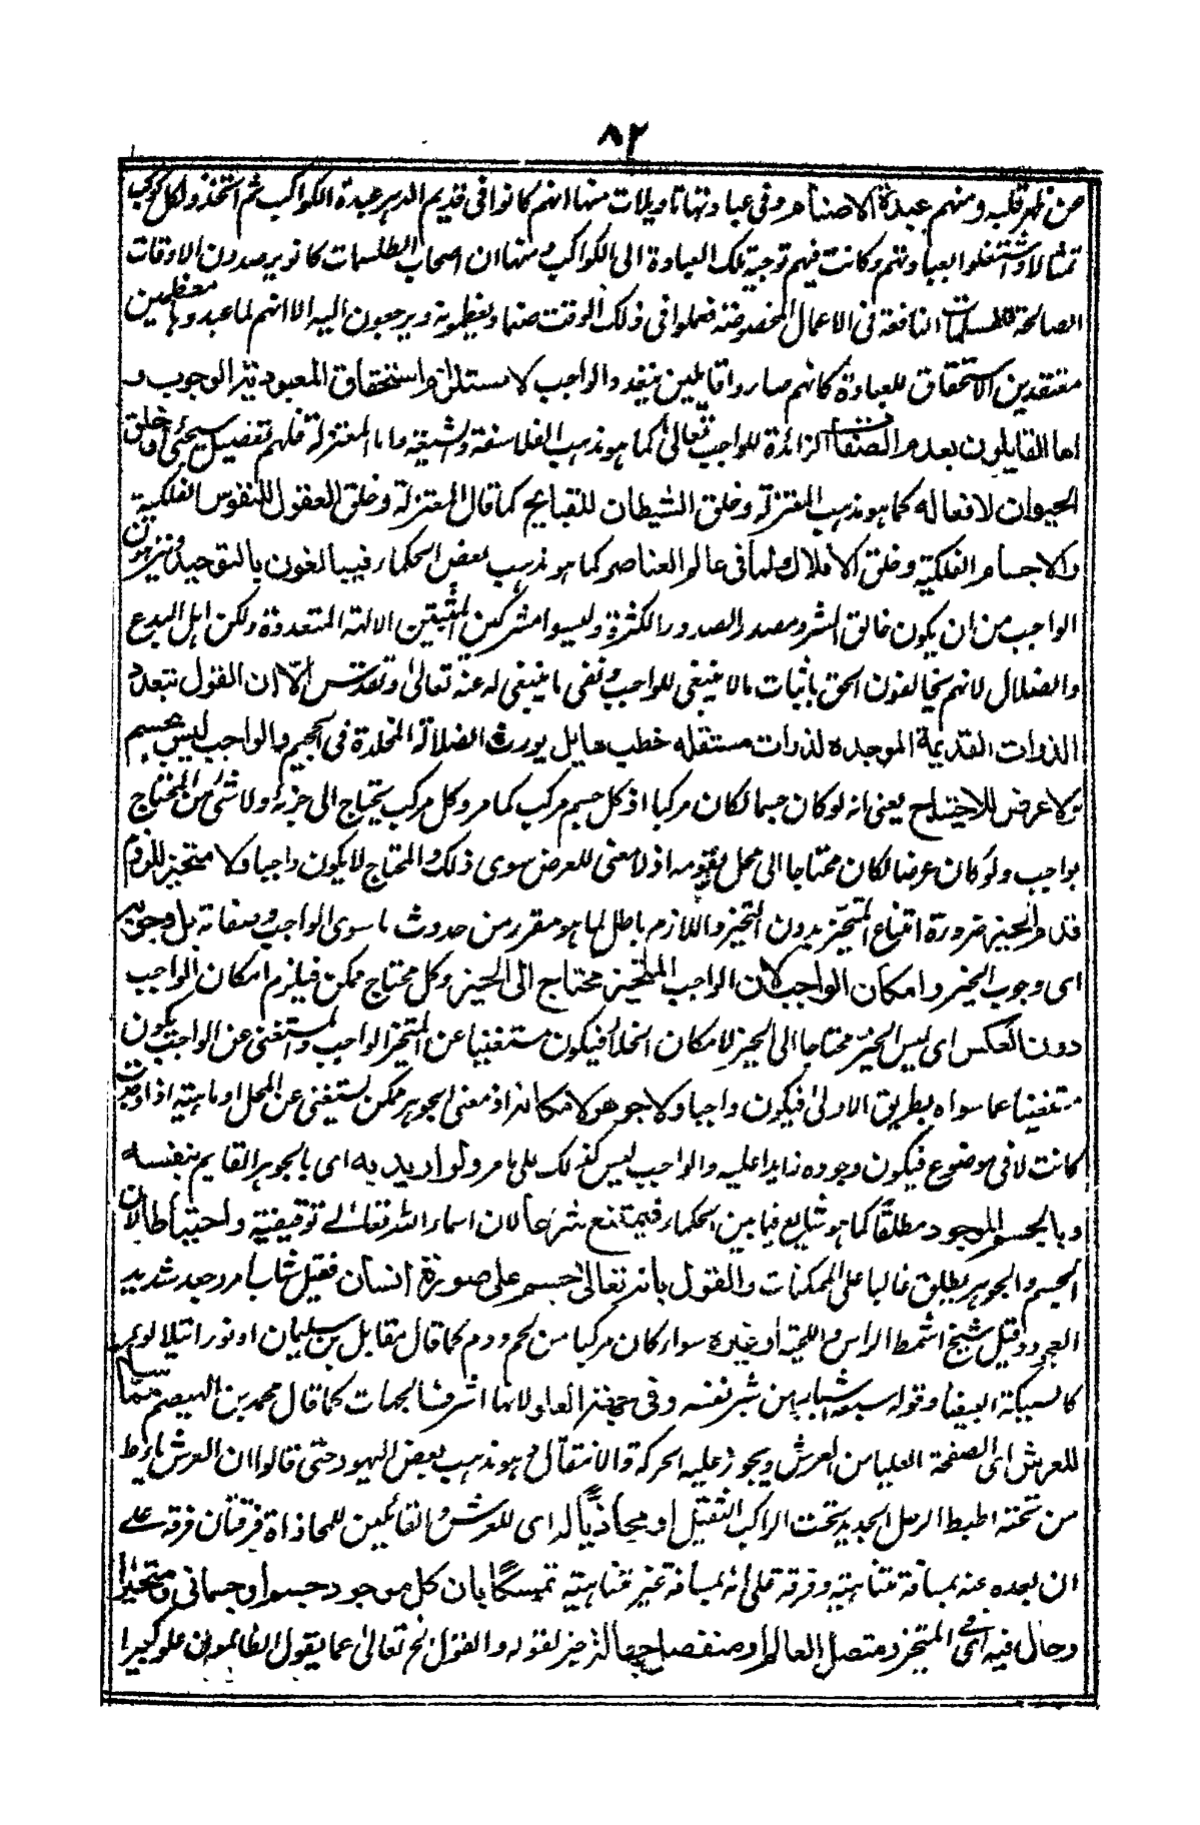 ٨٢
من ظهر قلبه ومنهم عبدة الاصنام وفى عبادتها تاويلات منها انهم كانوا فى قديم الدهر عبدة الكواكب ثم اتخذوا لكل كوكب
تمثالا واشتغلوا بعبادتهم وكانت فيهم توجيه تلك العبادة الى الكواكب ومنها ان اصحاب الطلسمات كانو يرصدون الاوقات
الصالحة للطلسمات النافعة فى الاعمال المخصوصة فعملوا فى ذلك الوقت صنما ويعظمونه ويرجعون اليه الا انهم لما عبدوها معظمين
معتقدين الاستحقاق للعبادة كانهم صاروا قايلين بتعدد الواجب لاستلزام استحقاق المعبودية الوجوب و
اما القايلون بعدم الصفات الزائدة للواجب تعالى كما هو مذهب الفلاسفة والشيعة واما المعتزلة فلهم تفصيل سيجئ او خلق
الحيوان لافعاله كما هو مذهب المعتزلة وخلق الشيطان للقبايح كما قال المعتزلة وخلق العقول للنفوس الفلكية
والاجسام الفلكية وخلق الافلاك لما فى عالم العناصر كما هو مذهب بعض الحكماء فيبالغون بالتوحيد وينزهون
الواجب من ان يكون خالق الشر ومصدر الصدور الكثرة وليسوا مشركين المثبتين الالهة المتعددة ولكن اهل البدع
والضلال لانهم يخالفون الحق باثبات مالا ينبغى للواجب ونفى ما ينبغى له عنه تعالى وتقدس الا ان القول بتعدد
الذوات القديمة الموجده لذوات مستقله خطب هايل يورث الضلالة المخلدة فى الجحيم والواجب ليس بجسم
ولا عرض للاحتياج يعنى انه لو كان جسما لكان مركبا اذ كل جسم مركب كما مر وكل مركب يحتاج الى جزئه ولا شئ من المحتاج
بواجب ولو كان عرضا لكان محتاجا الى محل يقومه اذ لا معنى للعرض سوى ذلك والمحتاج لا يكون واجبا ولا متحيز للزوم
قدم الحيز ضرورة امتناع المتحيز بدون التحيز واللازم باطل لما هو مقرر من حدوث ما سوى الواجب وصفاته بل وجوبه
اى وجوب الحيز وامكان الواجب لان الواجب المتحيز محتاج الى الحيز وكل محتاج ممكن فيلزم امكان الواجب
دون العكس اى ليس الحيز محتاجا الى الحيز لامكان الخلأ فيكون مستغنيا عن المتحيز الواجب والمستغنى عن الواجب يكون
مستغنيا عما سواه بطريق الاولى فيكون واجبا ولا جوهر لامكانه اذ معنى الجوهر ممكن يستغنى عن المحل او ماهيته اذا وجدت
كانت لا فى موضوع فيكون وجوده زايدا عليه والواجب ليس كذلك على ما مر ولو اريد به اى بالجوهر القايم بنفسه
وبالجسم الموجود مطلقا كما هو شايع فيما بين الحكماء فيمتنع شرعا لان اسماء الله تعالى توقيفية واحتياطا لان
الجسم والجوهر يطلق غالبا على الممكنات والقول بانه تعالى جسم على صورة انسان فقيل شاب امرد جعد شديد
الجعود وقيل شيخ اشمط الراس واللحية او غيره سواء كان مركبا من لحم ودم كما قال مقاتل بن سليمان او نور ايتلالو
كالسبيكة البيضاء وقوله سبعة اشبار من شبر نفسه وفى حيز العلو لانها اشرف الجهات كما قال محمد بن الهيصم مماسا
للعرش اى الصفحة العليا من العرش ويجوز عليه الحركة والانتقال وهو مذهب بعض اليهود حتى قالوا ان العرش يأط
من تحته اطيط الرحل الجديد تحت الراكب الثقيل او محاذيا له اى للعرش والقائمين للمحاذاة فرقتان فرقة على
ان بعده عنه بمسافة متناهية وفرقة على انه بمسافة غير متناهية تمسكا بان كل موجود جسم او جسمانى ومتحيزا
وحال فيه اى فى المتحيز ومتصل العالم او منفصل جهالة لقوله والقول لخ تعالى عما يقول الظالمون علوا كبيرا